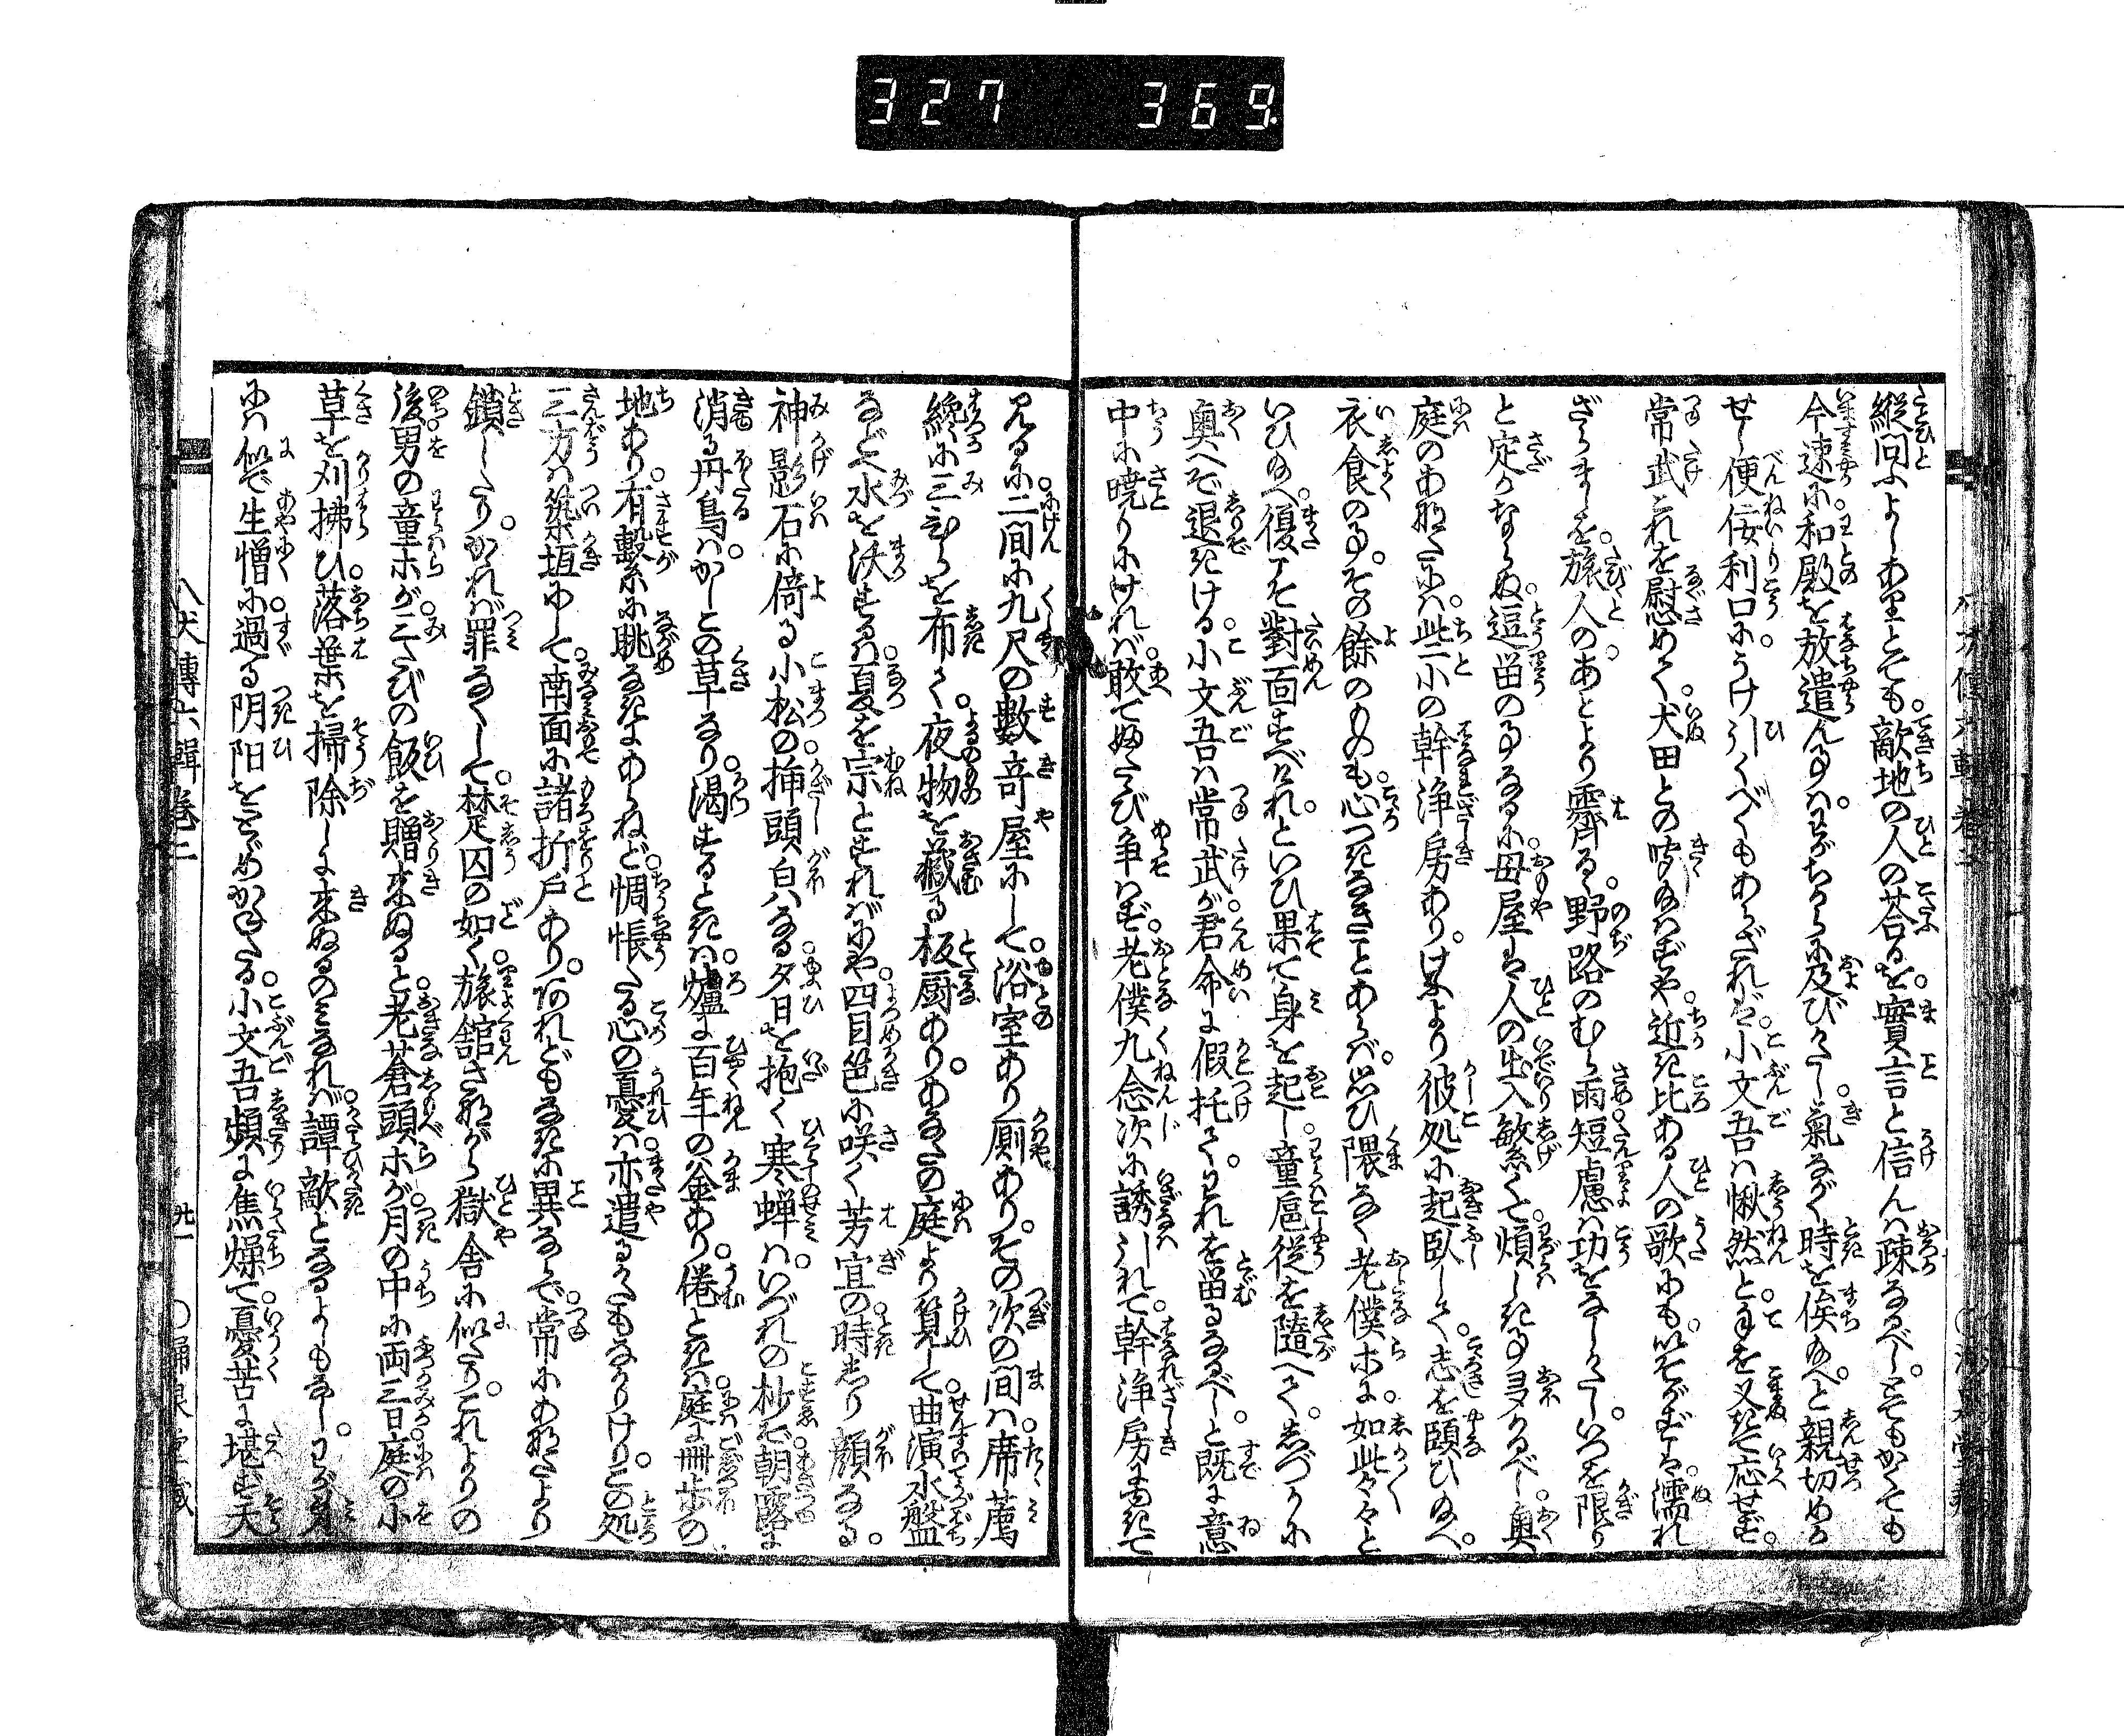 327 369
縦問ふよしありとても。敵地の人の荅るを。實言と信んは疎なるべし。とてもかくても
今速に和殿を放遣ん事は。わがちからに及びがたし。氣ながく時を俟給へと親切めか
せし便佞利口に。うけ引くべくもあらざれど。小文吾は愀然と。手を叉きて応せず。
常武これを慰めて。犬田どの聴給はずや。近き比ある人の歌にも。いそがずは。濡れ
ざらましを。旅人の。あとより霽る。野路のむら雨。短慮は功をなしがたし。いつを限り
と定かならぬ。逗留の事なるに。母屋は人の出入繁くて。煩しき事多かるべし。奥
庭のあなたには。些小の幹浄房あり。けふより彼処に起臥して。志を頤ひ給へ。
衣食の事。その餘のものも。心つきなきことあらば。思ひ隈なく老僕ホに。如此々々と
いひ給へ。復こそ對面すべけれ。といひ果て身を起し。童扈從を隨へて。しづかに
奥へぞ退きける。小文吾は常武が。君命に假托て。われを留るなるべし。と既に意
中に暁りにけれは。敢てふたゝび争はず。老僕九念次に誘引れて。幹浄房に赴きて
見るに。二間に九尺の數竒屋にして。浴室あり厠あり。その次の間は。席薦
纔に三ひらを布て。夜物を藏る板厨あり。あなたの庭より筧して。曲演水盤
など。水を沃するは。夏を宗とすればにや。四目笆に咲く芳宜の。時しり顔なる。
神影石に倚る小松の。挿頭白はなる夕日を抱く寒蝉は。いづれの杪ぞ。朝露に
消る丹鳥は。かしこの草なり。渇するときは。爐に百年の釜あり。倦ときは。庭に冊歩の
地あり。有繋に眺なきにあらねど。惆悵たる心の憂は。亦遣るかたもなかりけり。この処
三方は築垣にして。南面に諸折戸あり。されどもなきに異ならで。常にあなたより
鎖したり。かれば罪なくして。楚囚の如く。旅舘さながら獄舎に似たり。これよりの
後。男の童ホが三たびの飯を贈り来ぬると。老蒼頭ホが。月の中に両三日。庭の小
草を刈拂ひ。落葉を掃除しに来ぬるのみなれば。譚敵となるよしもなし。わが身
には似で生憎に。過る阴阳をとゞめかねたる。小文吾頻に焦燥て。憂苦に堪ず天
八犬傳六輯巻二 〇涌泉堂藏